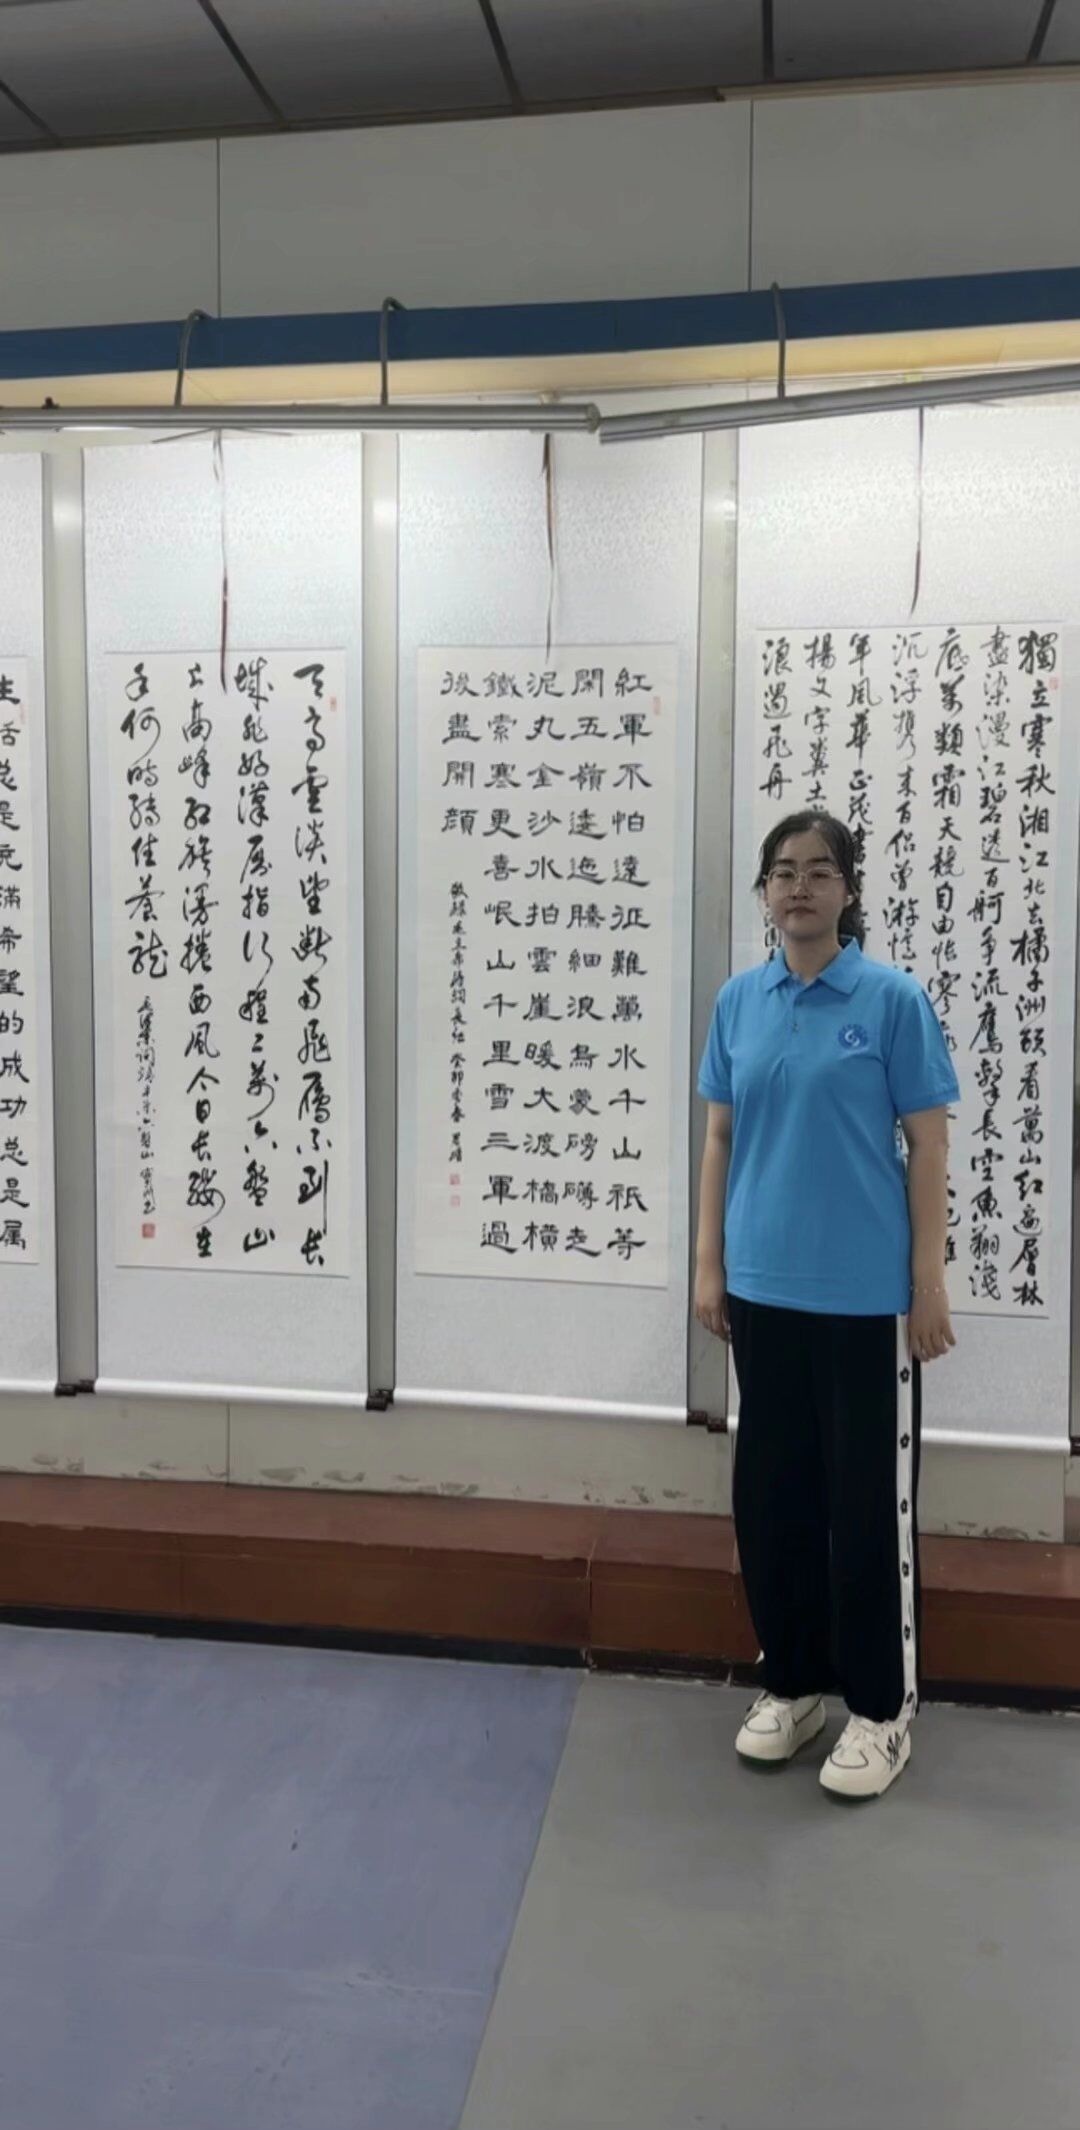 獨立寒秋湘江北去橘子洲頭看萬山紅遍層林
盡染漫江碧透百舸爭流鷹擊長空魚翔淺
底萬類霜天競自由悵寥
沉浮携来百侣曾游憶
年風華正茂書
揚文字糞土
浪遏飛舟
紅軍不怕遠征難萬水千山祇等
閑五嶺逶迤騰細浪烏蒙磅礴走
泥丸金沙水拍雲崖暖大渡橋橫
鐵索寒更喜岷山千里雪三軍過
後盡開顔
敬録毛主席詩詞長征 癸卯季春
天高雲淡望斷南飛雁不到長
城非好漢屈指行程二萬六盤山
上高峰紅旗漫捲西風今日長纓在
手何時縛住蒼龍
生活总是充满希望的成功总是属